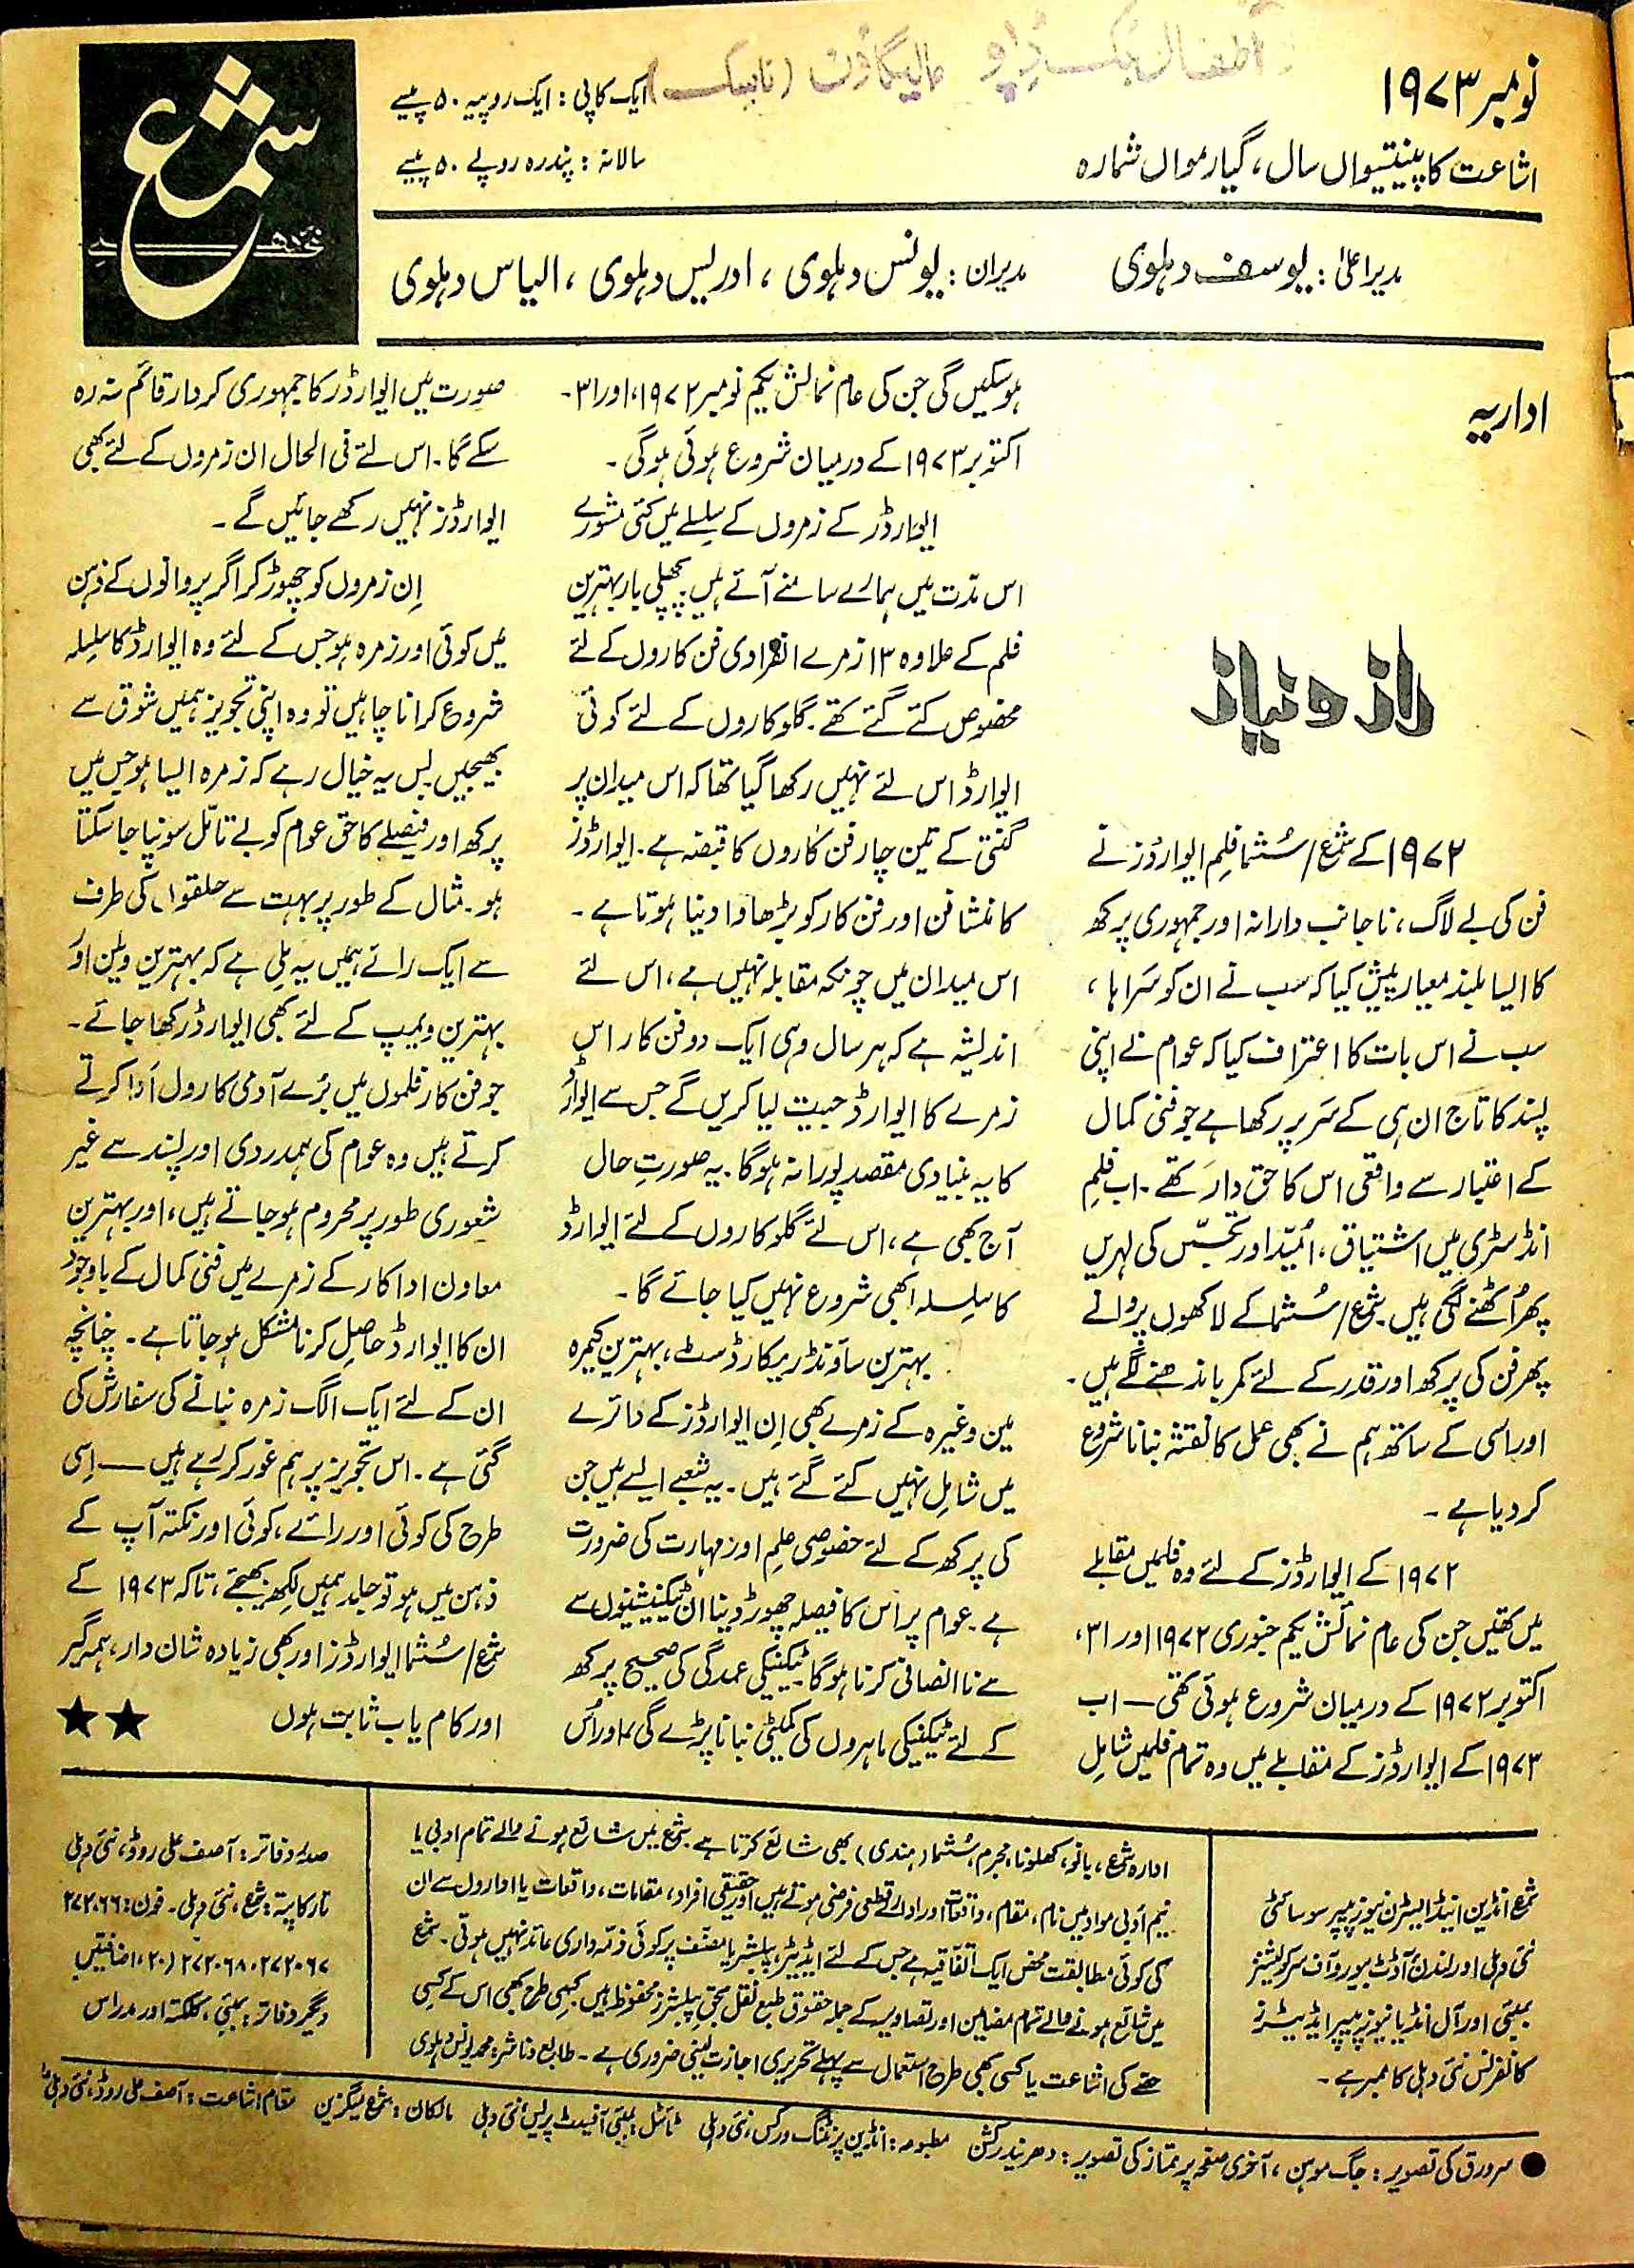 اطفال بک ڈپو مالیگاؤں (ناسک)
نومبر ۱۹۷۳
اشاعت کا پینتیسواں سال، گیارہواں شمارہ
ایک کاپی: ایک روپیہ ۵۰ پیسے
سالانہ: پندرہ روپے ۵۰ پیسے
شمع
نئی دہلی
مدیر اعلیٰ: یوسف دہلوی مدیران: یونس دہلوی، ادریس دہلوی، الیاس دہلوی
اداریہ
راز و نیاز
۱۹۷۲ کے شمع/سُشما فلم ایوارڈز نے
فن کی بے لاگ، ناجانب دارانہ اور جمہوری پرکھ
کا ایسا بلند معیار پیش کیا کہ سب نے ان کو سَراہا،
سب نے اس بات کا اعتراف کیا کہ عوام نے اپنی
پسند کا تاج ان ہی کے سَر پر رکھا ہے جو فنی کمال
کے اعتبار سے واقعی اس کا حق دار تھے۔ اب فلم
انڈسٹری میں اشتیاق، اُمیّد اور تجسّس کی لہریں
پھر اُٹھنے لگی ہیں۔ شمع/سُشما کے لاکھوں پروانے
پھر فن کی پرکھ اور قدر کے لئے کمر باندھنے لگے ہیں۔
اور اسی کے ساتھ ہم نے بھی عمل کا نقشہ بنانا شروع
کر دیا ہے۔
۱۹۷۲ کے ایوارڈز کے لئے وہ فلمیں مقابلے
میں تھیں جن کی عام نمائش یکم جنوری ۱۹۷۲ اور ۳۱،
اکتوبر ۱۹۷۲ کے درمیان شروع ہوئی تھی — اب
۱۹۷۳ کے ایوارڈز کے مقابلے میں وہ تمام فلمیں شامِل
ہو سکیں گی جن کی عام نمائش یکم نومبر ۱۹۷۲، اور ۳۱۔
اکتوبر ۱۹۷۳ کے درمیان شروع ہوئی ہوگی۔
ایوارڈز کے زمروں کے سِلسِلے میں کئی مشورے
اس مدّت میں ہمارے سامنے آئے ہیں۔ پچھلی بار بہترین
فلم کے علاوہ ۱۳ زمرے انفرادی فن کاروں کے لئے
مخصوص کئے گئے تھے۔ گلوکاروں کے لئے کوئی
ایوارڈ اس لئے نہیں رکھا گیا تھا کہ اس میدان پر
گنتی کے تین چار فن کاروں کا قبضہ ہے۔ ایوارڈز
کا منشا فن اور فن کار کو بڑھاوا دینا ہوتا ہے۔
اس میدان میں چونکہ مقابلہ نہیں ہے، اس لئے
اندیشہ ہے کہ ہر سال وہی ایک دو فن کار اس
زمرے کا ایوارڈ جیت لیا کریں گے جس سے ایوارڈ
کا یہ بنیادی مقصد پورا نہ ہوگا۔ یہ صورتِ حال
آج بھی ہے، اس لئے گلوکاروں کے لئے ایوارڈ
کا سلِسلہ ابھی شروع نہیں کیا جائے گا۔
بہترین ساؤنڈ ریکارڈسٹ، بہترین کیمرہ
مین وغیرہ کے زمرے بھی اِن ایوارڈز کے دائرے
میں شامِل نہیں کئے گئے ہیں۔ یہ شعبے ایسے ہیں جن
کی پرکھ کے لئے خصوصی علم اور مہارت کی ضرورت
ہے۔ عوام پر اس کا فیصلہ چھوڑ دینا ان ٹیکنیشنوں سے
سے ناانصافی کرنا ہوگا۔ ٹیکنیکی عمدگی کی صحیح پرکھ
کے لئے ٹیکنیکی ماہروں کی کمیٹی بنانا پڑے گی، اور اُس
صورت میں ایوارڈز کا جمہوری کردار قائم نہ رہ
سکے گا۔ اس لئے فی الحال ان زمروں کے لئے بھی
ایوارڈز نہیں رکھے جائیں گے۔
اِن زمروں کو چھوڑ کر اگر پروانوں کے ذہن
میں کوئی اور زمرہ ہو جس کے لئے وہ ایوارڈ کا سِلسِلہ
شروع کرانا چاہیں تو وہ اپنی تجویز ہمیں شوق سے
بھیجیں۔ بس یہ خیال رہے کہ زمرہ ایسا ہو جس میں
پرکھ اور فیصلے کا حق عوام کو بے تامّل سونپا جا سکتا
ہو۔ مثال کے طور پر بہت سے حلقوں کی طرف
سے ایک رائے ہمیں یہ ملی ہے کہ بہترین ویلن اور
بہترین ویمپ کے لئے بھی ایوارڈ رکھا جائے۔
جو فن کار فلموں میں بُرے آدمی کا رول اَدا کرتے
کرتے ہیں وہ عوام کی ہمدردی اور پسند سے غیر
شعوری طور پر محروم ہو جاتے ہیں، اور بہترین
معاون اداکار کے زمرے میں فنی کمال کے باوجود
ان کا ایوارڈ حاصِل کرنا مشکل ہو جاتا ہے۔ چنانچہ
ان کے لئے ایک الگ زمرہ بنانے کی سفارش کی
گئی ہے۔ اس تجویز پر ہم غور کر رہے ہیں — اِسی
طرح کی کوئی اور رائے، کوئی اور نکتہ آپ کے
ذہن میں ہو تو جلد ہمیں لکھ بھیجئے، تاکہ ۱۹۷۳ کے
شمع/سُشما ایوارڈز اور بھی زیادہ شان دار، ہمہ گیر
اور کام یاب ثابت ہوں ★★
شمع انڈین اینڈ ایسٹرن نیوز پیپر سوسائٹی
نئی دہلی اور لندن، آڈٹ بیورو آف سرکولیشنز
بمبئی اور آل انڈیا نیوز پیپر ایڈیٹرز
کانفرنس نئی دہلی کا ممبر ہے۔
ادارہ شمع، بانو، کھلونا، مجرم، سُشما (ہندی) بھی شائع کرتا ہے۔ شمع میں شائع ہونے والے تمام ادبی یا
نیم ادبی مواد میں نام، مقام، واقعات اور ادارے قطعی فرضی ہوتے ہیں اور حقیقی افراد، مقامات، واقعات یا اداروں سے ان
کی کوئی مطابقت محض ایک اتفاقیہ ہے جس کے لئے ایڈیٹر، پبلشر یا مصنّف پر کوئی ذمّہ داری عائد نہیں ہوتی۔ شمع
میں شائع ہونے والے تمام مضامین اور تصاویر کے جملہ حقوق طبع نقل بحق پبلشرز محفوظ ہیں۔ کسی طرح بھی اس کے کسی
حصّے کی اشاعت یا کسی بھی طرح استعمال سے پہلے تحریری اجازت لینی ضروری ہے۔ طابع و ناشر: محمد یونس دہلوی
صدر دفاتر: آصف علی روڈ، نئی دہلی
تار کا پتہ: شمع، نئی دہلی۔ فون: ۲۷۲۰۶۶
۲۷۲۰۶۷، ۲۷۲۰۶۸ (۲۰، اضافتیں)
دیگر دفاتر: بمبئی، کلکتہ اور مدراس
● سرورق کی تصویر: جگ موہن، آخری صفحہ پر ممتاز کی تصویر: دھرنیدر کشن مطبوعہ: انڈین پرنٹنگ ورکس، نئی دہلی ٹائٹل: بمبئی آفیسٹ پریس، نئی دہلی مالکان: شمع میگزین مقام اشاعت: آصف علی روڈ، نئی دہلی